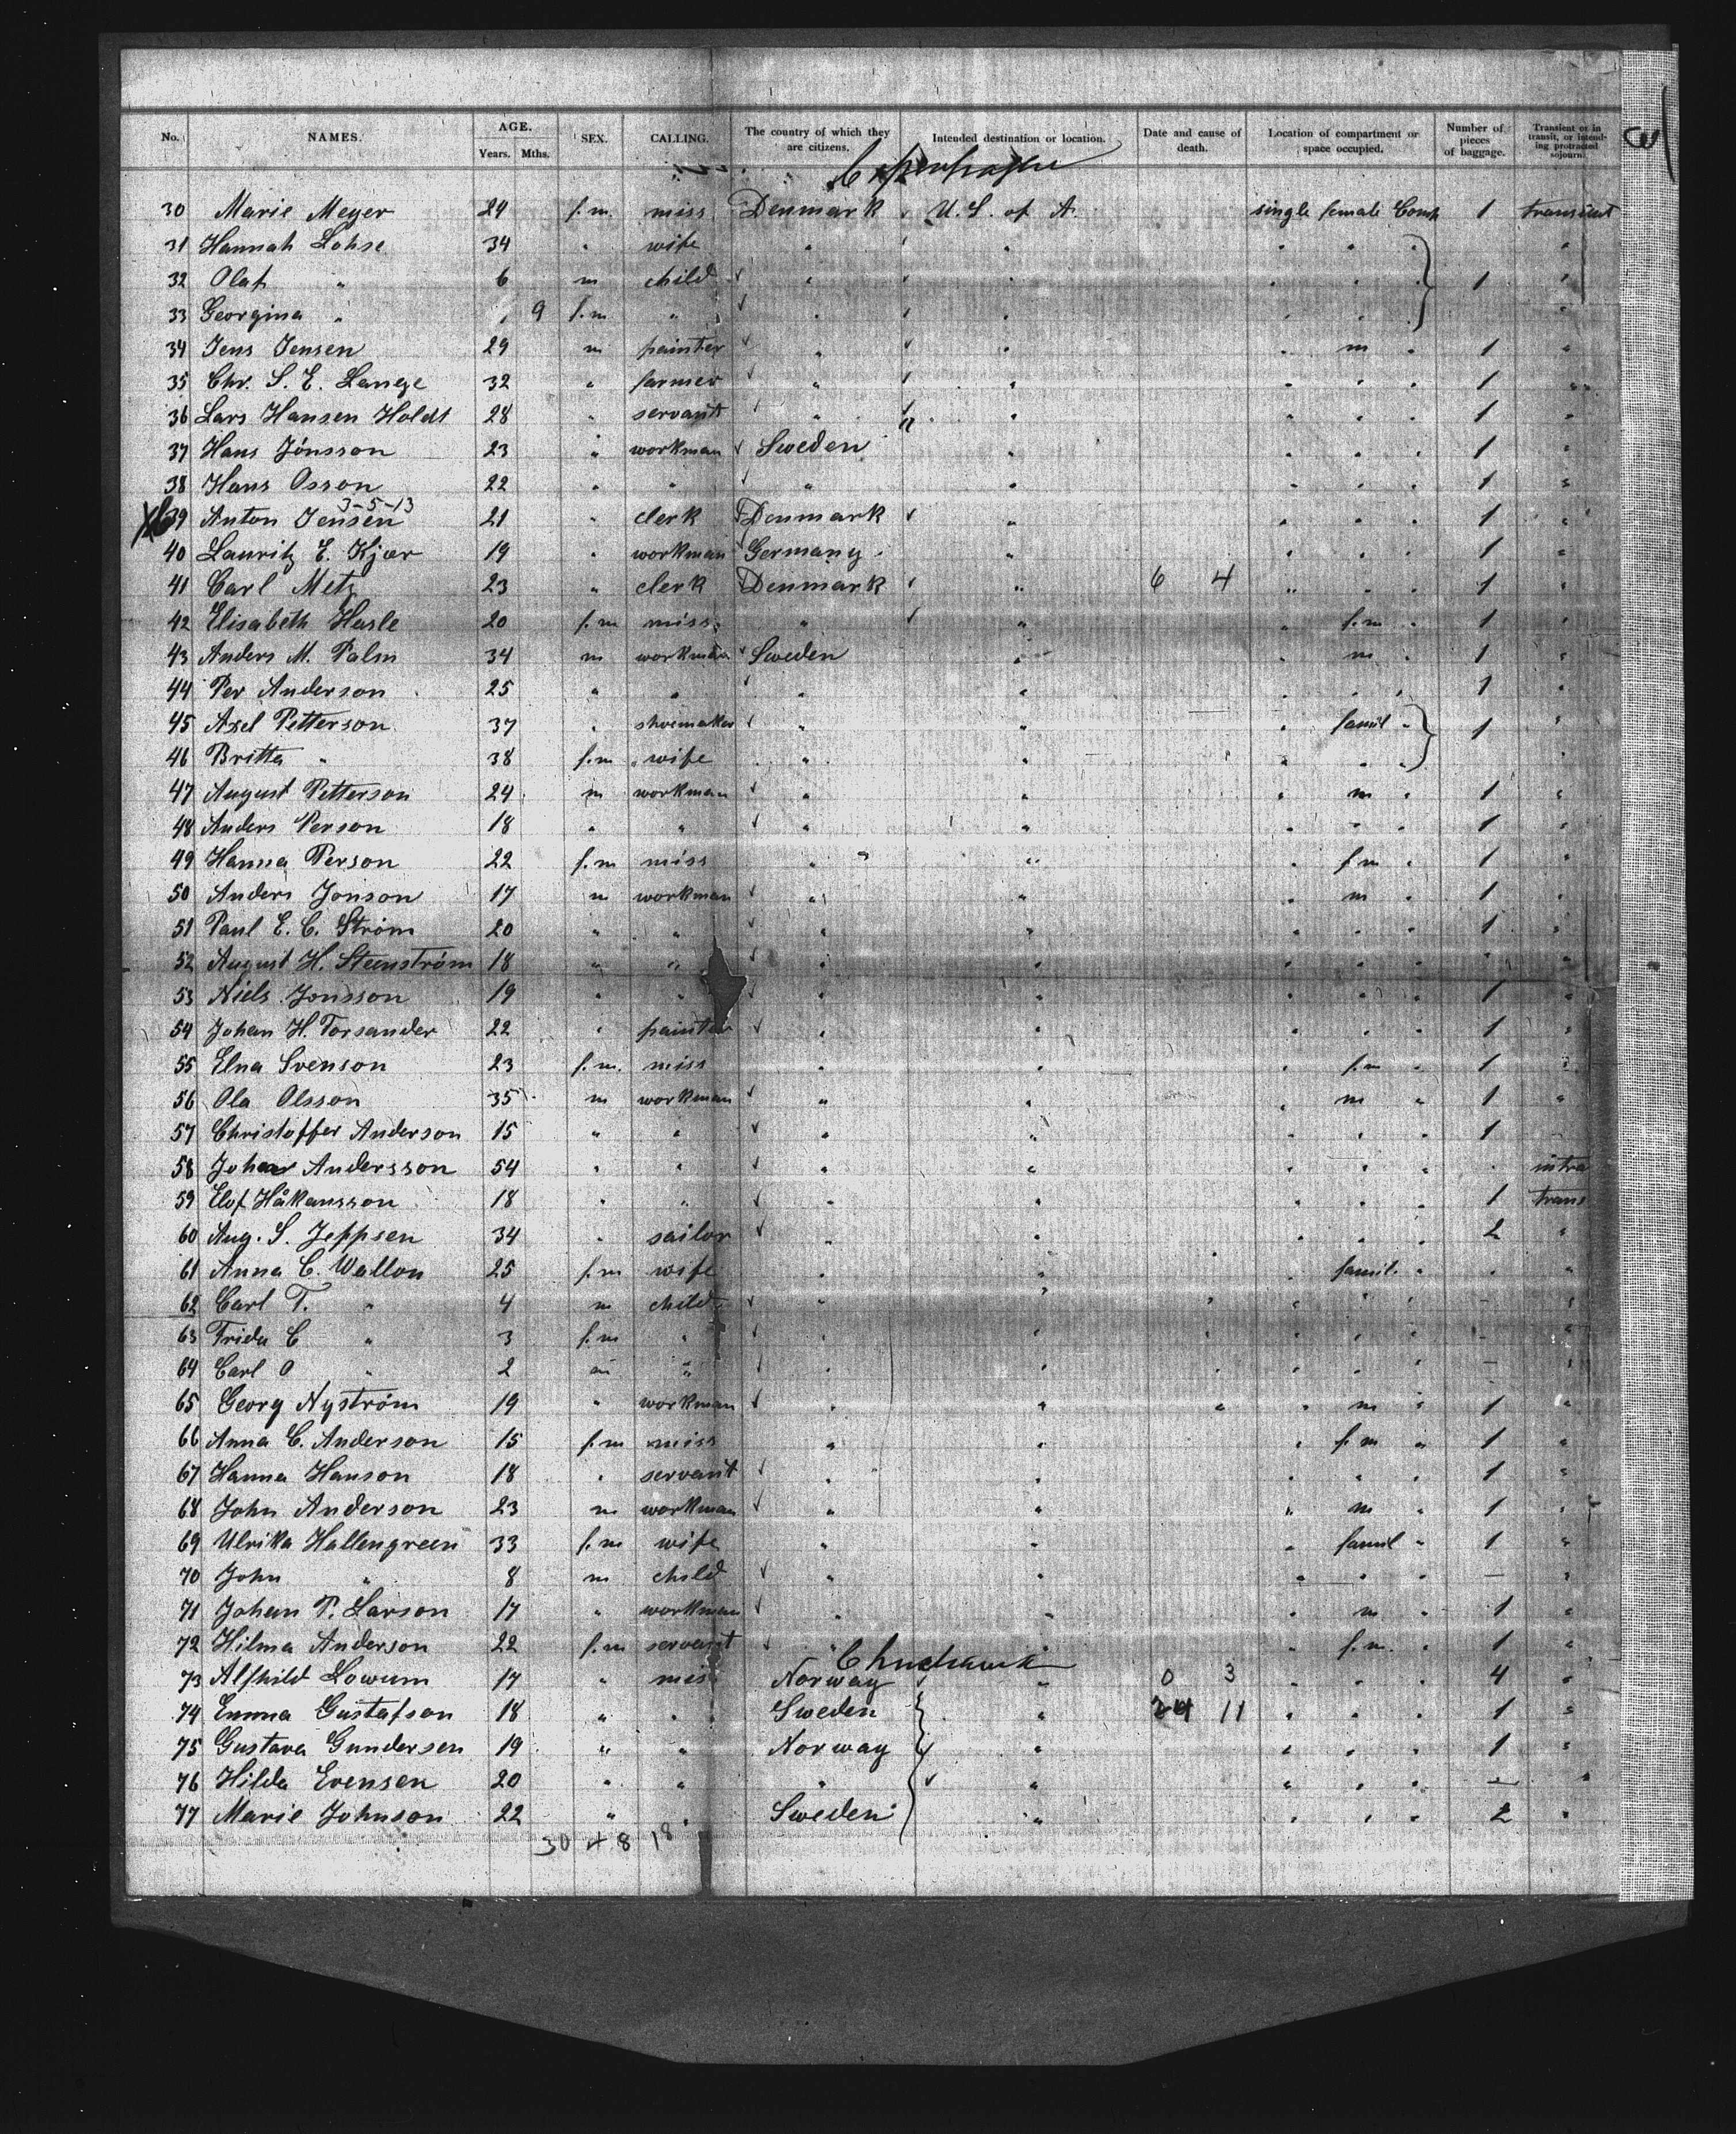 No. NAMES. AGE. Years. Mths. SEX. CALLING. The country of which they are citizens. Intended destination or location. Date and cause of death. Location of compartment or space occupied. Number of pieces of baggage. Transient or in transit, or intending protracted sojourn.
3
Copenhagen
30 Marie Meyer 24 f.m. miss Denmark U.S. of A. single female Comp 1 transient
31 Hannah Lohse 34 " wife " " " " "
32 Olaf " 6 m child " " " " 1 "
33 Georgina " 9 f.m " " " " " "
34 Jens Jensen 29 m painter " " " m " 1 "
35 Chr. S. E. Lange 32 " farmer " " " " " 1 "
36 Lars Hansen Holdt 28 " servant " " " " " 1 "
37 Hans Jönsson 23 " workman Sweden " " " " 1 "
38 Hans Osson 22 " " " " " " " 1 "
3-5-13
39 Anton Jensen 21 " clerk Denmark " " " " 1 "
40 Lauritz E. Kjær 19 " workman Germany " " " " 1 "
41 Carl Metz 23 " clerk Denmark " 6 4 " " " 1 "
42 Elisabeth Hasle 20 f.m miss " " " f.m " 1 "
43 Anders M. Palm 34 m workman Sweden " " m " 1 "
44 Per Anderson 25 " " " " " " " 1 "
45 Axel Petterson 37 " shoemaker " " " famil " 1 "
46 Britta " 38 f.m wife " " " " " "
47 August Petterson 24 m workman " " " m " 1 "
48 Anders Person 18 " " " " " " " 1 "
49 Hanna Person 22 f.m miss " " " f.m " 1 "
50 Anders Jonson 17 m workman " " " m " 1 "
51 Paul E. C. Strøm 20 " " " " " " " 1 "
52 August H. Steenström 18 " " " " " " " "
53 Niels Jonsson 19 " " " " " " " 1 "
54 Johan H. Torsander 22 " painter " " " " " 1 "
55 Elna Svenson 23 f.m. miss " " " f.m " 1 "
56 Ola Olsson 35 m workman " " " m " 1 "
57 Christoffer Anderson 15 " " " " " " " 1 "
58 Johan Andersson 54 " " " " " " " " intra
59 Elof Håkansson 18 " " " " " " " 1 trans
60 Aug. S. Jeppsen 34 " sailor " " " " " 2 "
61 Anna C. Wallon 25 f.m wife " " " famil. " " "
62 Carl T. " 4 m child " " " " " - "
63 Frida C " 3 f.m " " " " " " - "
64 Carl O " 2 m " " " " " " - "
65 Georg Nyström 19 " workman " " " m " 1 "
66 Anna C. Anderson 15 f.m miss " " " f.m " 1 "
67 Hanna Hanson 18 " servant " " " " " 1 "
68 John Anderson 23 m workman " " " m " 1 "
69 Ulrika Hallengreen 33 f.m wife " " " famil " 1 "
70 John " 8 m child " " " " " - "
71 Johan P. Larson 17 " workman " " " m " 1 "
72 Hilma Anderson 22 f.m servant " " " f.m. " 1 "
73 Alfhild Lowum 17 " miss Norway " 0 3 " " " 4 "
74 Emma Gustafson 18 " " Sweden " 11 " " " 1 "
75 Gustava Gundersen 19 " " Norway " " " " 1 "
76 Hilda Evensen 20 " " " " " " " - "
77 Marie Johnson 22 " " Sweden " " " " 2 "
30 4 8 18